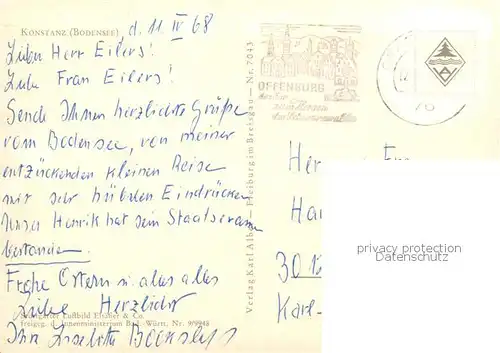 KONSTANZ (BODENSEE)
d. 11 IV 68
Lieber Herr Eilers!
Liebe Frau Eilers!
Sende Ihnen herzlichste Grüße
vom Bodensee, von meiner
entzückenden kleinen Reise
mit sehr hübschen Eindrücken
Unser Henrik hat sein Staatsexamen
bestanden.
Frohe Ostern u. alles alles
Liebe Herzlichst
Ihre
Luftbild Elsäßer & Co.
Freigeg. d. Innenministerium Bad.-Württ. Nr.
Verlag Karl Alber — Freiburg im Breisgau — Nr. 7043
OFFENBURG
70
Her
Han
30
Karl-
privacy protection